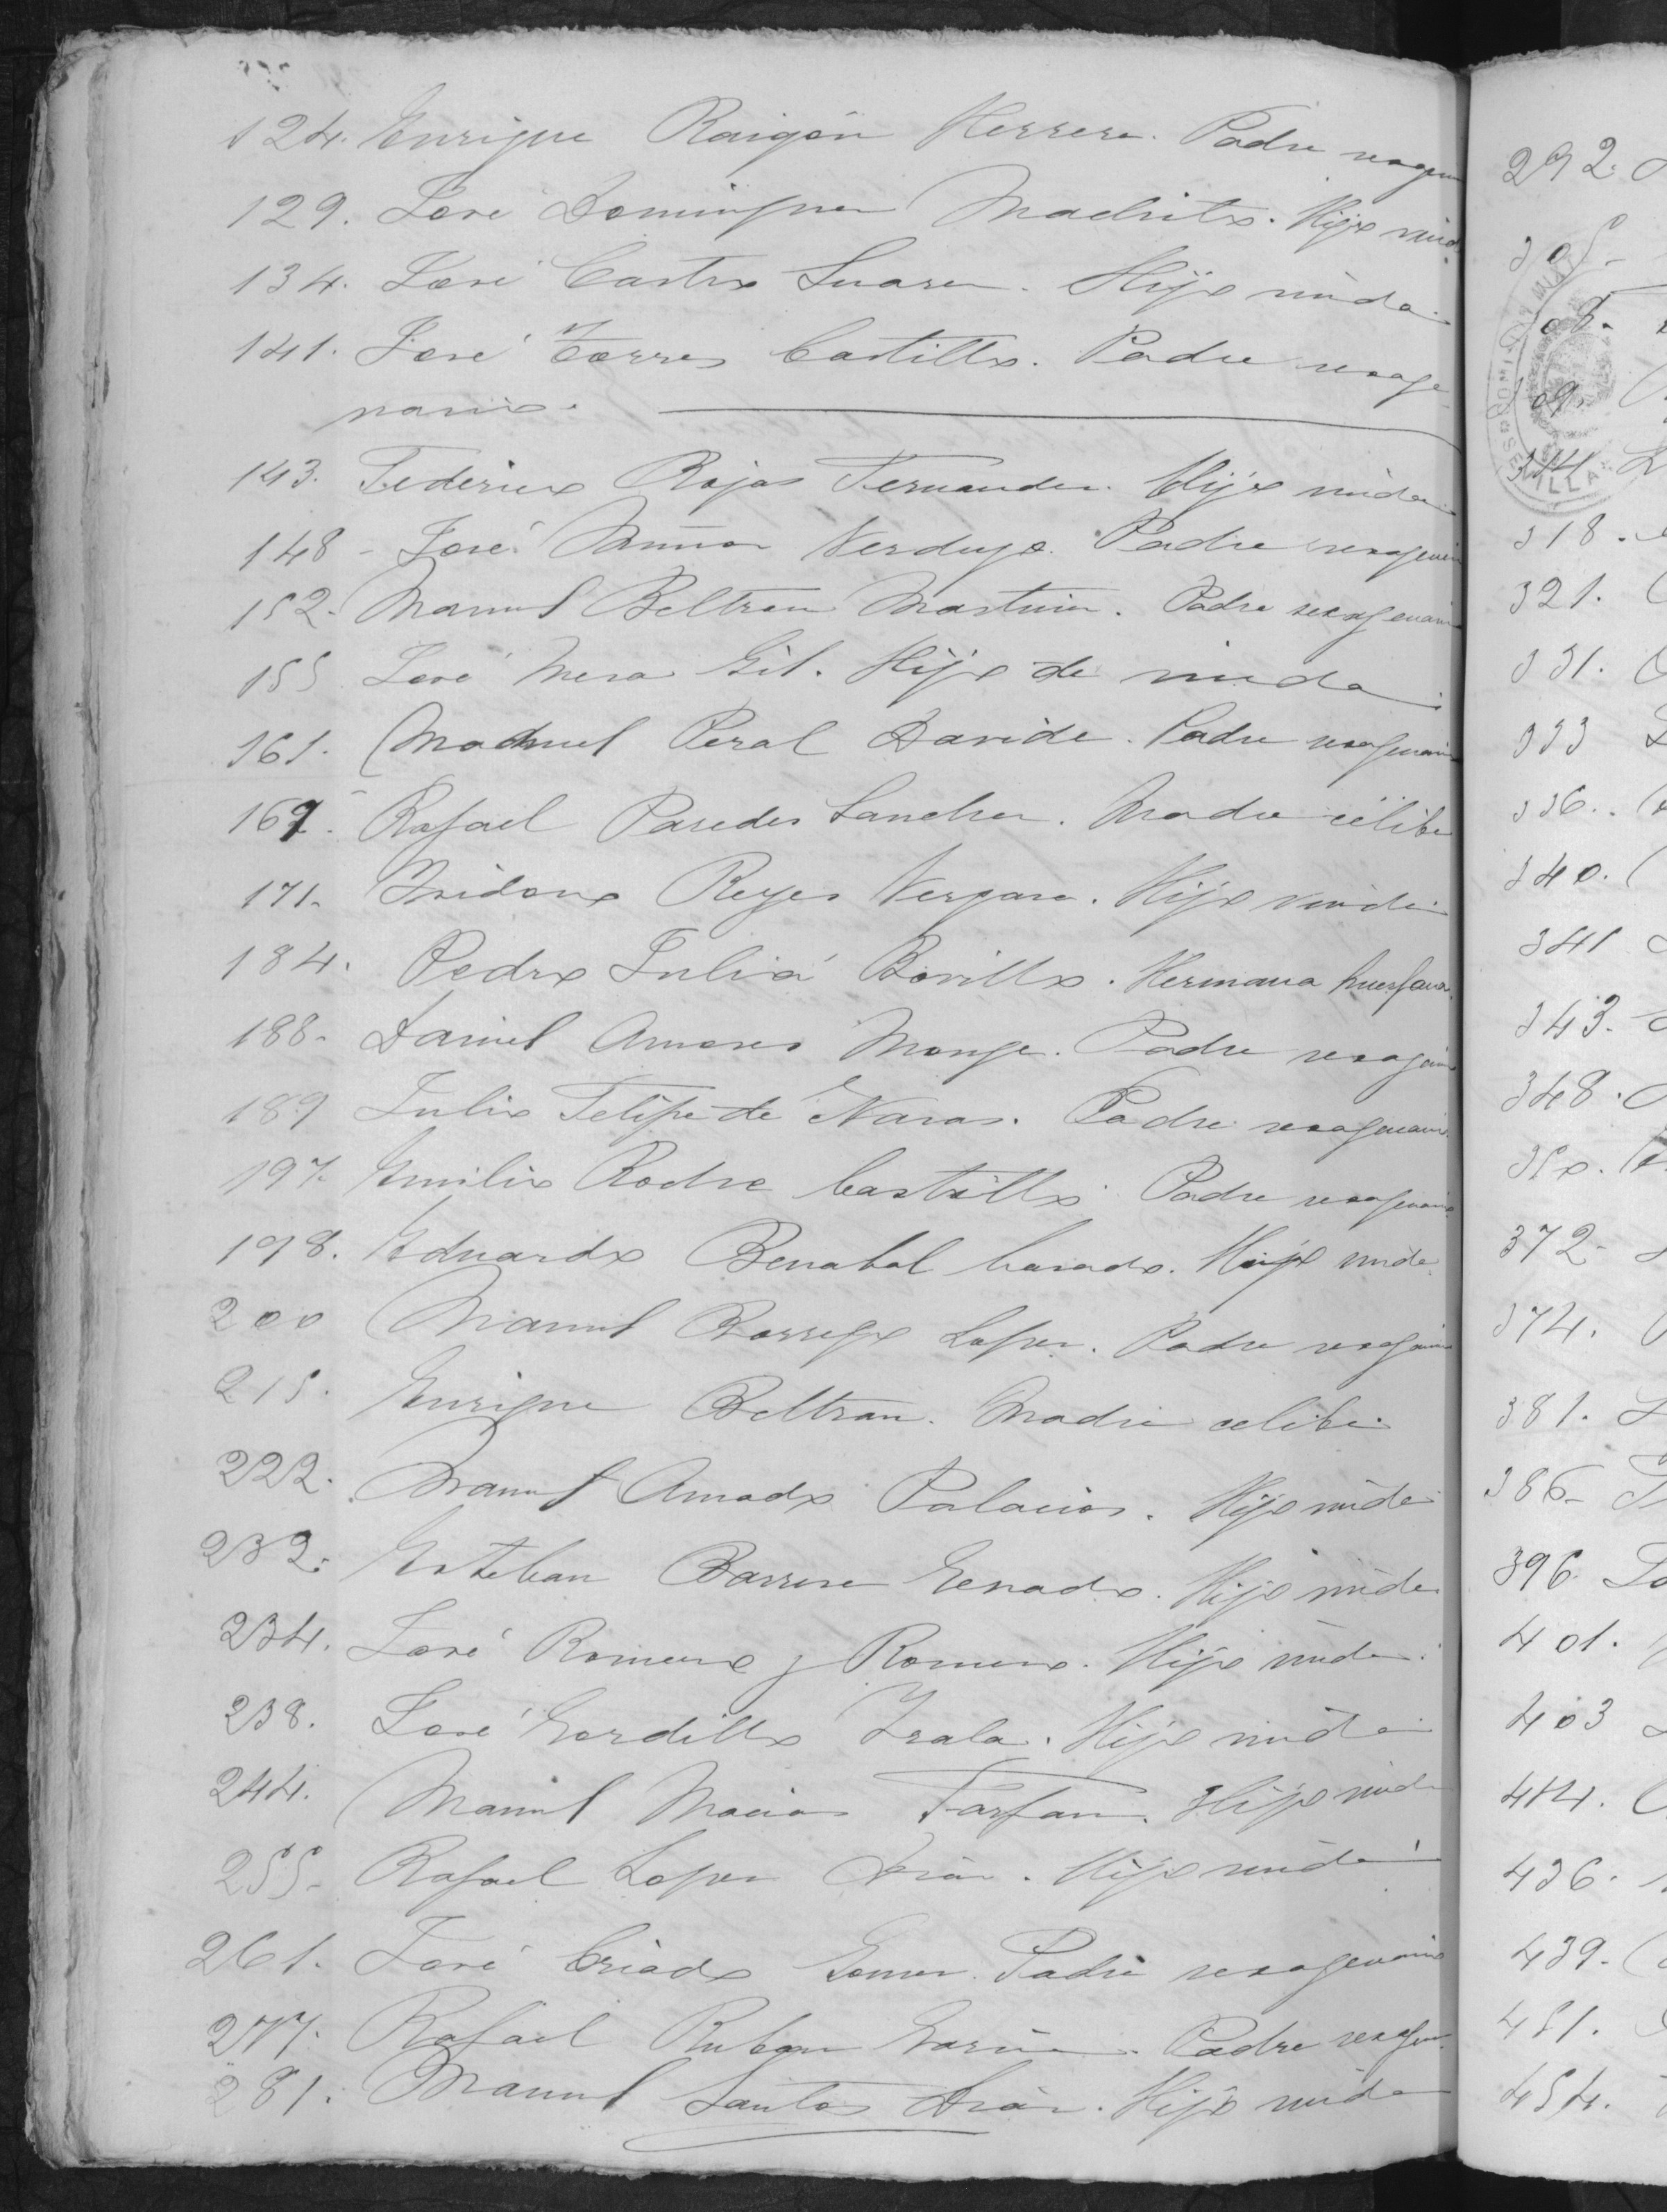 124. Enrique Raigón Herrera. Padre sexagen
129. José Dominguez Machito. Hijo viud
134. José Castro Suarez. Hijo viuda
141. José Torres Castillo. Padre sexage
nario.
143. Federico Rojas Fernandez. Hijo viuda
148 - José Muñoz Verdugo. Padre sexagen
152. Manuel Beltran Martinez. Padre sexagenari
155 José Mesa Gil. Hijo de viuda
161. Manuel Peral Davide. Padre sexagenari
169. Rafael Paredes Sanchez. Madre célibe
171. Isidoro Reyes Vergara. Hijo viuda
184. Pedro Juliá Borillo. Hermana huerfana
188. Daniel Amores Monge. Padre sexagen
189 Julio Felipe de Navas. Padre sexagenari
197. Emilio Castillo. Padre sexagenario
198. Eduardo Benabal Casado. Hijo viuda
200 Manuel Borrego Lopez. Padre sexagen
215. Enrique Beltran. Madre celibe.
222. Manuel Amado Palacios. Hijo viuda
232. Esteban Barrera Genado. Hijo viuda
234. José Romero y Romero. Hijo viuda.
238. José Gordillo Irala. Hijo viuda
244. Manuel Macias Farfan. Hijo viuda
255. Rafael Lopez Diaz. Hijo viuda
261. José Criado Gomez. Padre sexagenario
277. Rafael Garcia. Padre sexagen.
281. Manuel Santos Diaz. Hijo viuda
292.
305.
09.
314.
318.
321.
331.
333
336.
340.
341
343.
348.
350.
372.
374.
381.
386.
396.
401.
403
414.
436.
439.
451.
454.